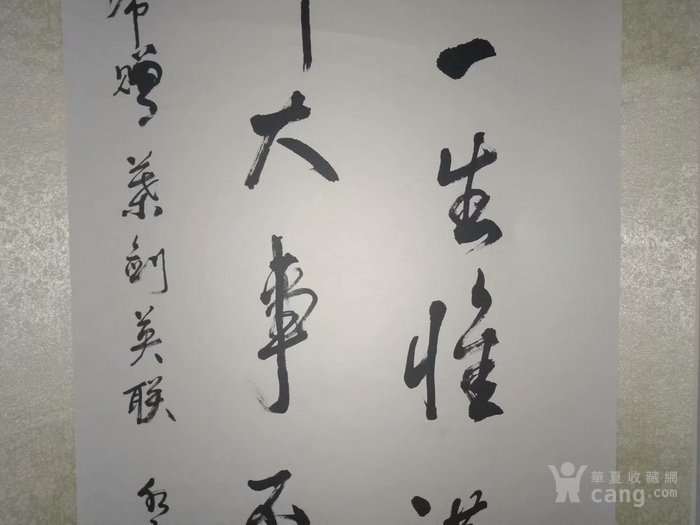 一生惟谨
大事不
帅赠叶剑英联
華夏收藏網
cang.com